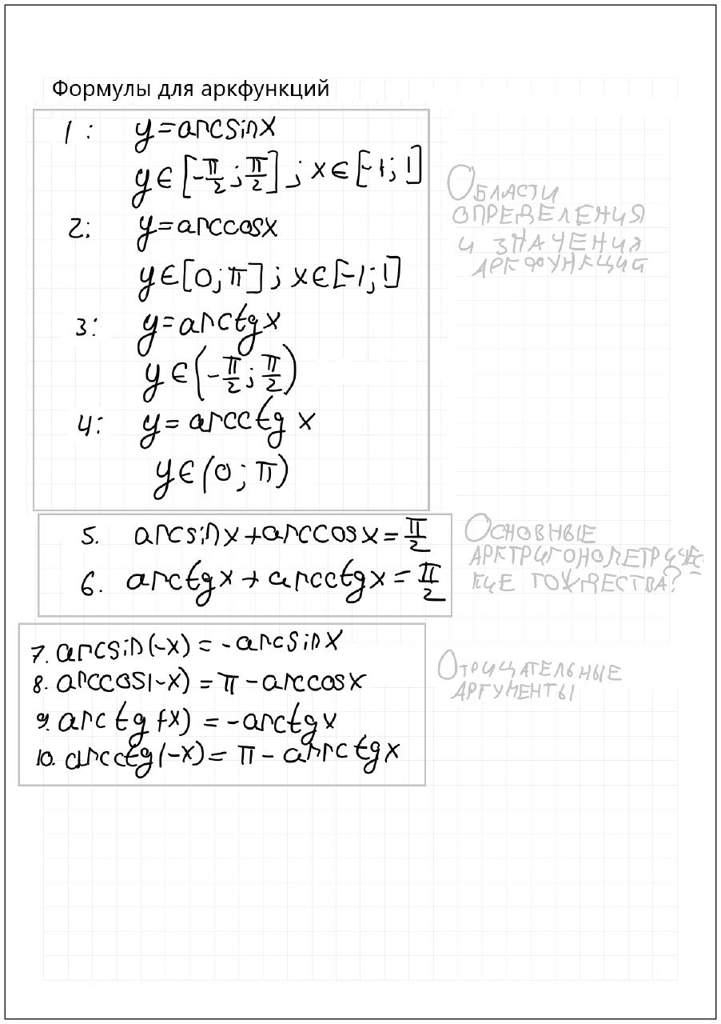 Формулы для аркфункций
1: y=arcsinx
y∈[-π/2;π/2]; x∈[-1;1]
2: y=arccosx
y∈[0;π]; x∈[-1;1]
3: y=arctgx
y∈(-π/2;π/2)
4: y=arcctg x
y∈(0;π)
Области
определения
и значения
аркфункций
5. arcsinx+arccosx=π/2
6. arctgx+arcctgx=π/2
Основные
арктригонометричес
кие тождества?
7. arcsin(-x)=-arcsinx
8. arccos(-x)=π-arccosx
9. arctg(-x)=-arctgx
10. arcctg(-x)=π-arrctgx
Отрицательные
аргументы